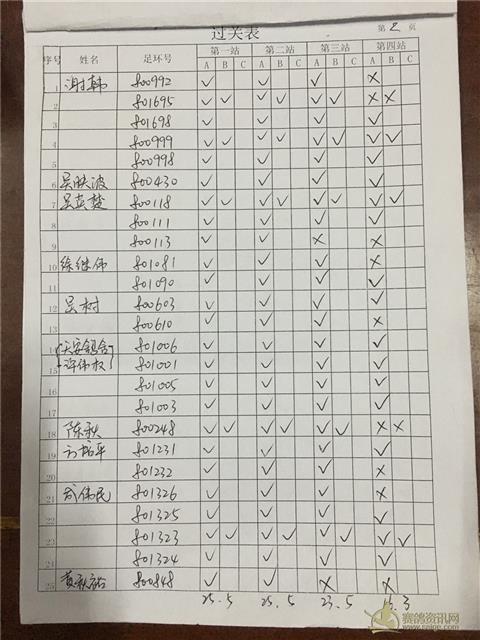 过关表 第 2 页
序号 姓名 足环号 第一站 第二站 第三站 第四站
A B C A B C A B C A B C
1 谢韩 800992 ✓ ✓ ✓ ✗
2 801695 ✓ ✓ ✓ ✓ ✓ ✓ ✗ ✗
3 801698 ✓ ✓ ✓ ✓
4 800999 ✓ ✓ ✓ ✓ ✓ ✓ ✓ ✓
5 800998 ✓ ✓ ✓ ✓
6 吴映波 800430 ✓ ✓ ✓ ✓
7 吴楚 800118 ✓ ✓ ✓ ✓ ✓ ✓ ✓ ✓
8 800111 ✓ ✓ ✓ ✓
9 800113 ✓ ✓ ✗ ✗
10 徐继伟 801081 ✓ ✓ ✓ ✗
11 801090 ✓ ✓ ✓ ✓
12 吴树 800603 ✓ ✓ ✓ ✓
13 800610 ✓ ✓ ✓ ✗
14 天安鸽舍 801006 ✓ ✓ ✓ ✓
15 许伟权 801001 ✓ ✓ ✓ ✓
801005 ✓ ✓ ✓ ✓
17 801003 ✓ ✓ ✓ ✓
18 陈秋 800248 ✓ ✓ ✓ ✓ ✓ ✓ ✗ ✗
19 平 801231 ✓ ✓ ✓ ✓
20 801232 ✓ ✓ ✓ ✗
21 伟民 801326 ✓ ✓ ✓ ✗
22 801325 ✓ ✓ ✓ ✓
23 801323 ✓ ✓ ✓ ✓ ✓ ✓ ✓ ✓
24 801324 ✓ ✓ ✓ ✓
25 黄秋 800848 ✓ ✓ ✗ ✗
25.5 25.5 23.5 .3
赛鸽资讯网
www.saige.com